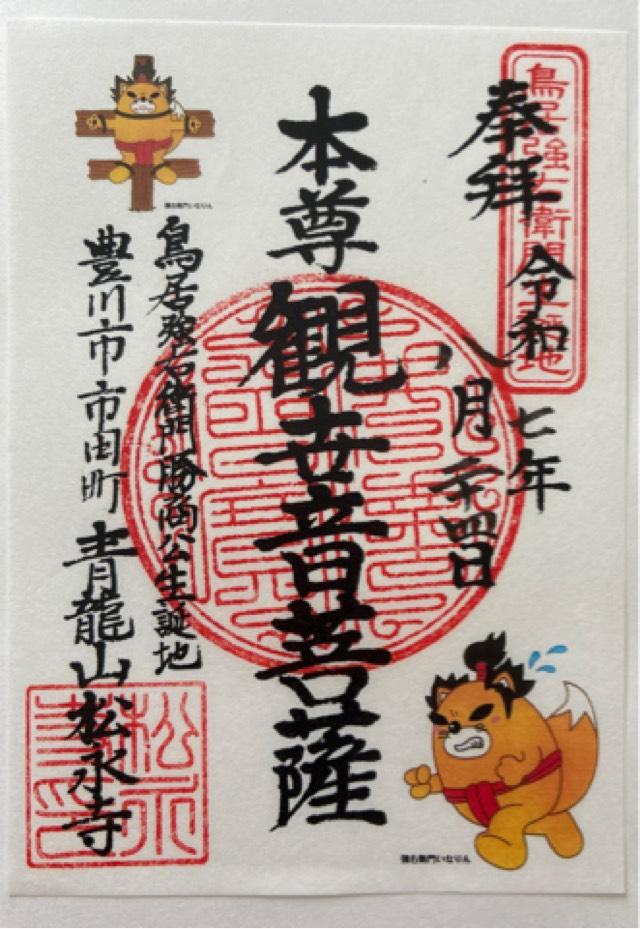 奉拝
鳥居強右衛門生誕地
令和七年
八月二十四日
本尊
観世音菩薩
鳥居強右衛門勝商公生誕地
豊川市市田町 青龍山松永寺
強右衛門いなりん
強右衛門いなりん